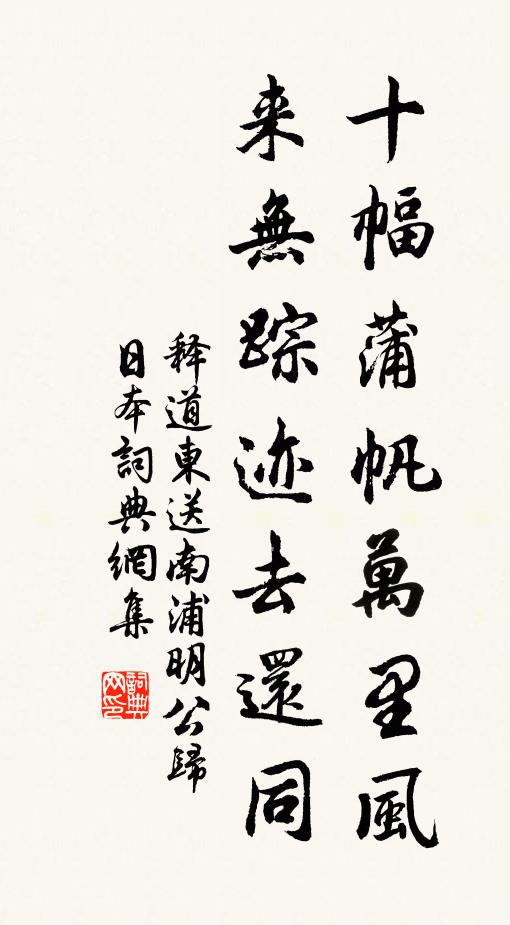 十幅蒲帆萬里風
来無踪迹去還同
释道東送南浦明公歸
日本詞典網集
詞典网印